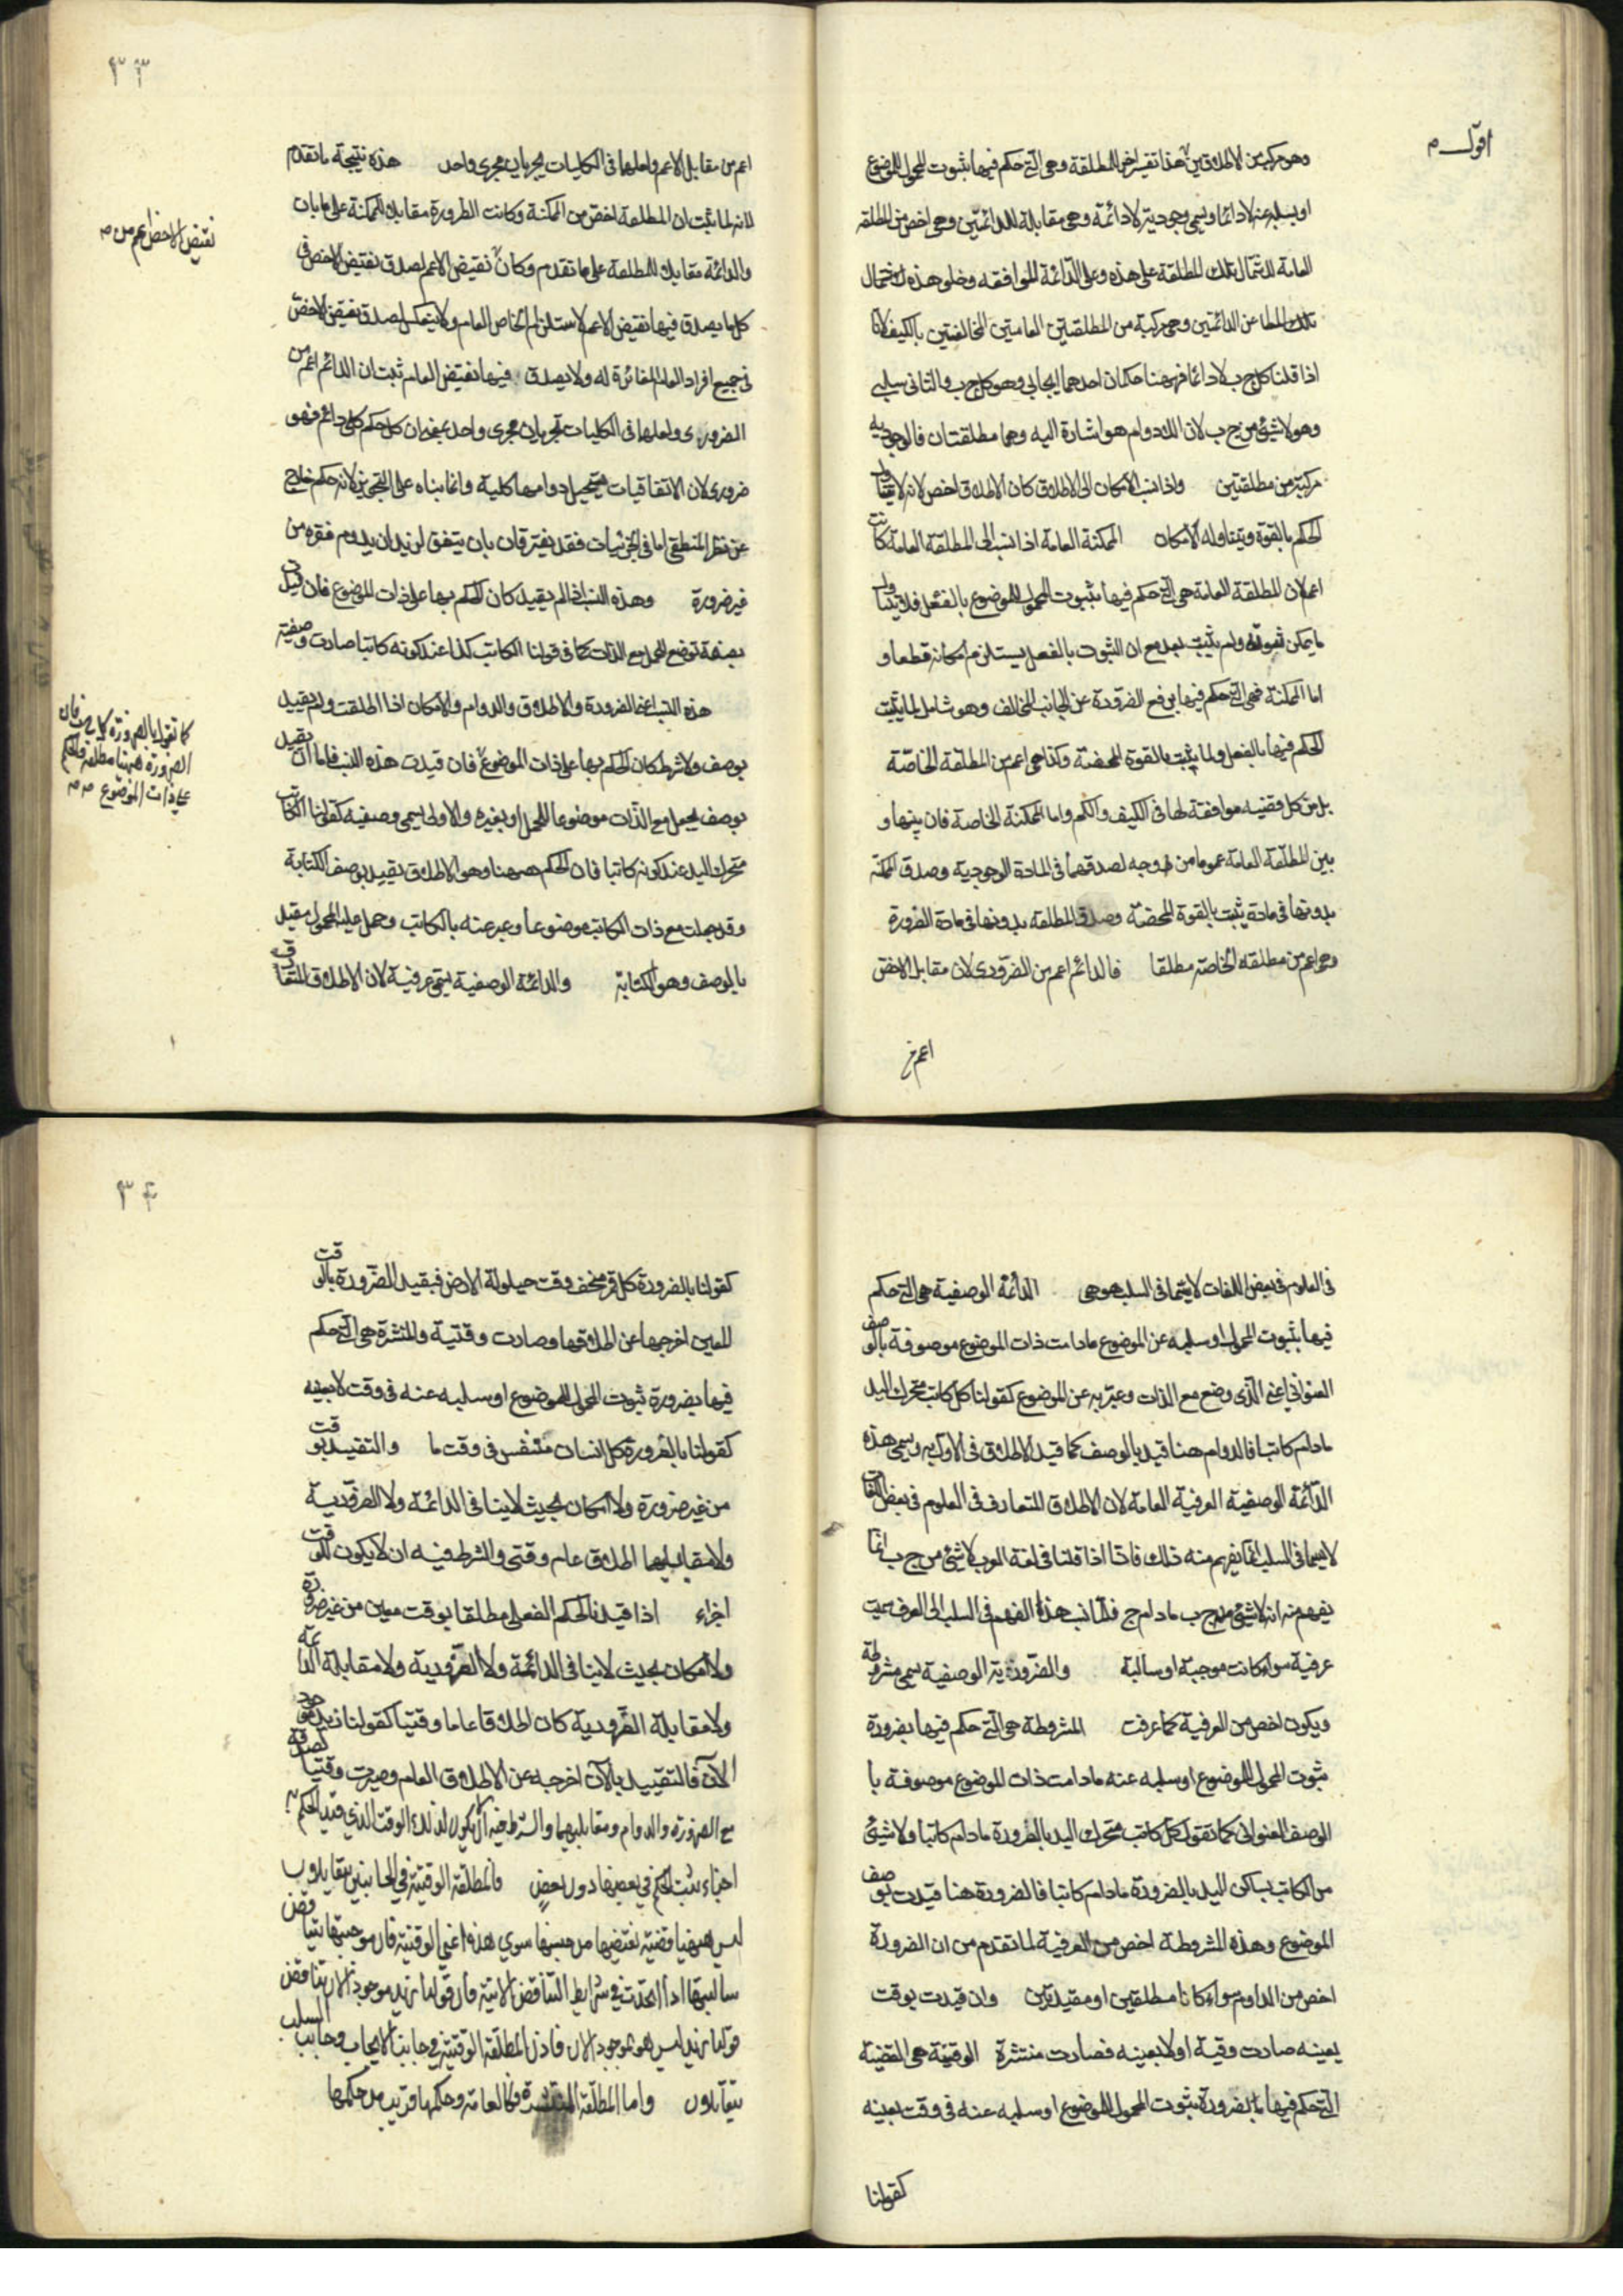 اقول م
وهو مركبة من الاطلاقين هذا تفسير اخر للمطلقة وهى التى حكم فيها بثبوت المحمول للموضوع
او بسلبه عنه لا دائما ويسمى وجودية لا دائمة وهى مقابلة للدائمتين وهى اخص من المطلقة
العامة لاشتمال تلك المطلقة على هذه وعلى الدائمة الموافقه وخلو هذه
تلك عن الدائمتين وهى مركبة من المطلقتين العامتين المخالفتين بالكيف لانا
اذا قلنا كل ج ب لا دائما فهيهنا حكمان احدهما ايجابى وهو كل ج ب والثانى سلبى
وهو لا شئ من ج ب لان اللادوام هو اشارة اليه وهما مطلقتان فالوجوديه
مركبة من مطلقتين واذا نسب الامكان الى الاطلاق كان الاطلاق اخص لانه لا يتناول
الحكم بالقوة ويتناوله الامكان الممكنة العامة اذا نسب الى المطلقة العامة كانت
اعم لان المطلقة العامة هى التى حكم فيها بثبوت المحمول للموضوع بالفعل فلا يتناول
ما يمكن ثبوته ولم يثبت بعد مع ان الثبوت بالفعل يستلزم امكانه قطعا و
اما الممكنة فهى التى حكم فيها برفع الضرورة عن الجانب المخالف وهو شامل لما يثبت
الحكم فيها بالفعل ولما يثبت بالقوة المحضة وكذا هى اعم من المطلقة الخاصة
بل من كل قضيه موافقة لها فى الكيف والكم واما الممكنة الخاصة فان بينها و
بين المطلقة العامة عموما من وجه لصدقهما فى المادة الوجودية وصدق الممكنة
بدونها فى مادة يثبت بالقوة المحضة وصدق المطلقة بدونها فى مادة الضرورة
وهى اعم من مطلقه الخاصة مطلقا فالدائم اعم من الضرورى لان مقابل الاخص
اعم من
٣٣
اعم من مقابل الاعم ولعلهما فى الكليات يجريان مجرى واحد هذه نتيجة ما تقدم
لانه لما ثبت ان المطلقة اخص من الممكنة وكانت الضرورة مقابلة للممكنة على ما بان
والدائمة مقابلة للمطلقة على ما تقدم وكان نقيض الاعم لصدق نقيض الاخص فى
كل ما يصدق فيها نقيض الاعم لاستلزام الخاص العام ولا ينعكس لصدق نقيض الاخص
فى جميع افراد العام المغائرة له ولا يصدق فيها نقيض العام ثبت ان الدائم اعم من
الضرورى ولعلهما فى الكليات تجريان مجرى واحد يعنى ان كل حكم كلى دائم فهو
ضرورى لان الاتفاقيات يستحيل دوامها كلية وانما بناه على التجويز لانه حكم خارج
عن نظر المنطقى اما فى الجزئيات فقد يفترقان بان يتفق لزيد ان يدوم فقره من
غير ضرورة وهذه النسب اذا لم يقيد كان الحكم بها على ذات الموضوع فان قيل
بصفة توضع للحمل مع الذات كما فى قولنا الكاتب كذا عند كونه كاتبا صارت وصفية
هذه النسب اعنى الضرورة والاطلاق والدوام والامكان اذا اطلقت ولم يقيد
بوصف ولا شرط كان الحكم بها على ذات الموضوع فان قيدت هذه النسب فاما ان يقيد
بوصف يجعل مع الذات موضوعا للحمل او بغيره والاولى يسمى وصفيه كقولنا الكاتب
متحرك اليد عند كونه كاتبا فان الحكم ههنا وهو الاطلاق يقيد بوصف الكتابة
وقد جعلت مع ذات الكاتب موضوعا وعبر عنه بالكاتب وحمل عليه المحمول مقيد
بالوصف وهو الكتابة والدائمة الوصفية يسمى عرفية لان الاطلاق المتعارف
نقيض الاخص اعم من م
كما تقول بالضرورة كل ج ب فان
الضرورة ههنا مطلقة والحكم
على ذات الموضوع م م
فى العلوم فى بعض اللغات لا سيما فى السلب هو هى الدائمة الوصفية هى التى حكم
فيها بثبوت المحمول او سلبه عن الموضوع ما دامت ذات الموضوع موصوفة بالوصف
العنوانى اعنى الذى وضع مع الذات وعبر به عن الموضوع كقولنا كل كاتب متحرك اليد
ما دام كاتبا فالدوام هنا قيد بالوصف كما قيد الاطلاق فى الاولى به ويسمى هذه
الدائمة الوصفية العرفية العامة لان الاطلاق المتعارف فى العلوم فى بعض اللغات
لا سيما فى السلب انما يفهم منه ذلك فانا اذا قلنا فى لغة العرب لا شئ من ج ب انما
يفهم منه انه لا شئ من ج ب ما دام ج فلما نسب هذا الفهم فى السلب الى العرف سميت
عرفية سواء كانت موجبة او سالبة والضرورية الوصفية يسمى مشروطة
ويكون اخص من العرفية كما عرفت المشروطة هى التى حكم فيها بضرورة
ثبوت المحمول للموضوع او سلبه عنه ما دامت ذات الموضوع موصوفة با
الوصف العنوانى كما تقول كل كاتب متحرك اليد بالضرورة ما دام كاتبا ولا شئ
من الكاتب بساكن اليد بالضرورة ما دام كاتبا فالضرورة هنا قيدت بوصف
الموضوع وهذه المشروطة اخص من العرفية لما تقدم من ان الضرورة
اخص من الدوام سواء كانا مطلقين او مقيدين وان قيدت بوقت
بعينه صارت وقتية او لا بعينه فصارت منتشرة الوقتية هى القضية
التى حكم فيها بالضرورة بثبوت المحمول للموضوع او سلبه عنه فى وقت بعينه
كقولنا
٣٤
كقولنا بالضرورة كل قمر منخسف وقت حيلولة الارض فبقيد الضرورة بالوقت
المعين اخرجها عن اطلاقها وصارت وقتية والمنتشرة هى التى حكم
فيها بضرورة ثبوت المحمول للموضوع او سلبه عنه فى وقت لا بعينه
كقولنا بالضرورة كل انسان متنفس فى وقت ما والتقييد بوقت
من غير ضرورة ولا امكان بحيث لا ينافى الدائمة ولا الضرورية
ولا مقابليهما اطلاق عام وقتى والشرط فيه ان لا يكون للوقت
اجزاء اذا قيدنا الحكم الفعلى مطلقا بوقت معين من غير ضرورة
ولا امكان بحيث لا ينافى الدائمة ولا الضرورية ولا مقابلة الدائمة
ولا مقابلة الضرورية كان اطلاقا عاما وقتيا كقولنا زيد موجود
الآن فالتقييد بالآن اخرجه عن الاطلاق العام وصيرت وقتيا لصدقه
مع الضرورة والدوام ومقابليهما والشرط فيه ان لا يكون لذلك الوقت الذى قيد الحكم به
اجزاء يثبت الحكم فى بعضها دون بعض والمطلقة الوقتية فى الجانبين يتقابلان
ليس ههنا قضية نقيضها من جنسها سوى هذه اعنى الوقتية فان موجبتها تناقض
سالبتها اذا اتحدت فى شرايط التناقض الاتية فان قولنا زيد موجود الان يناقض
قولنا زيد ليس هو بموجود الان فاذن المطلقة الوقتية فى جانب الايجاب وجانب السلب
يتقابلان واما المطلقة المنتشرة فكالعامة وحكمها قريب من حكمها